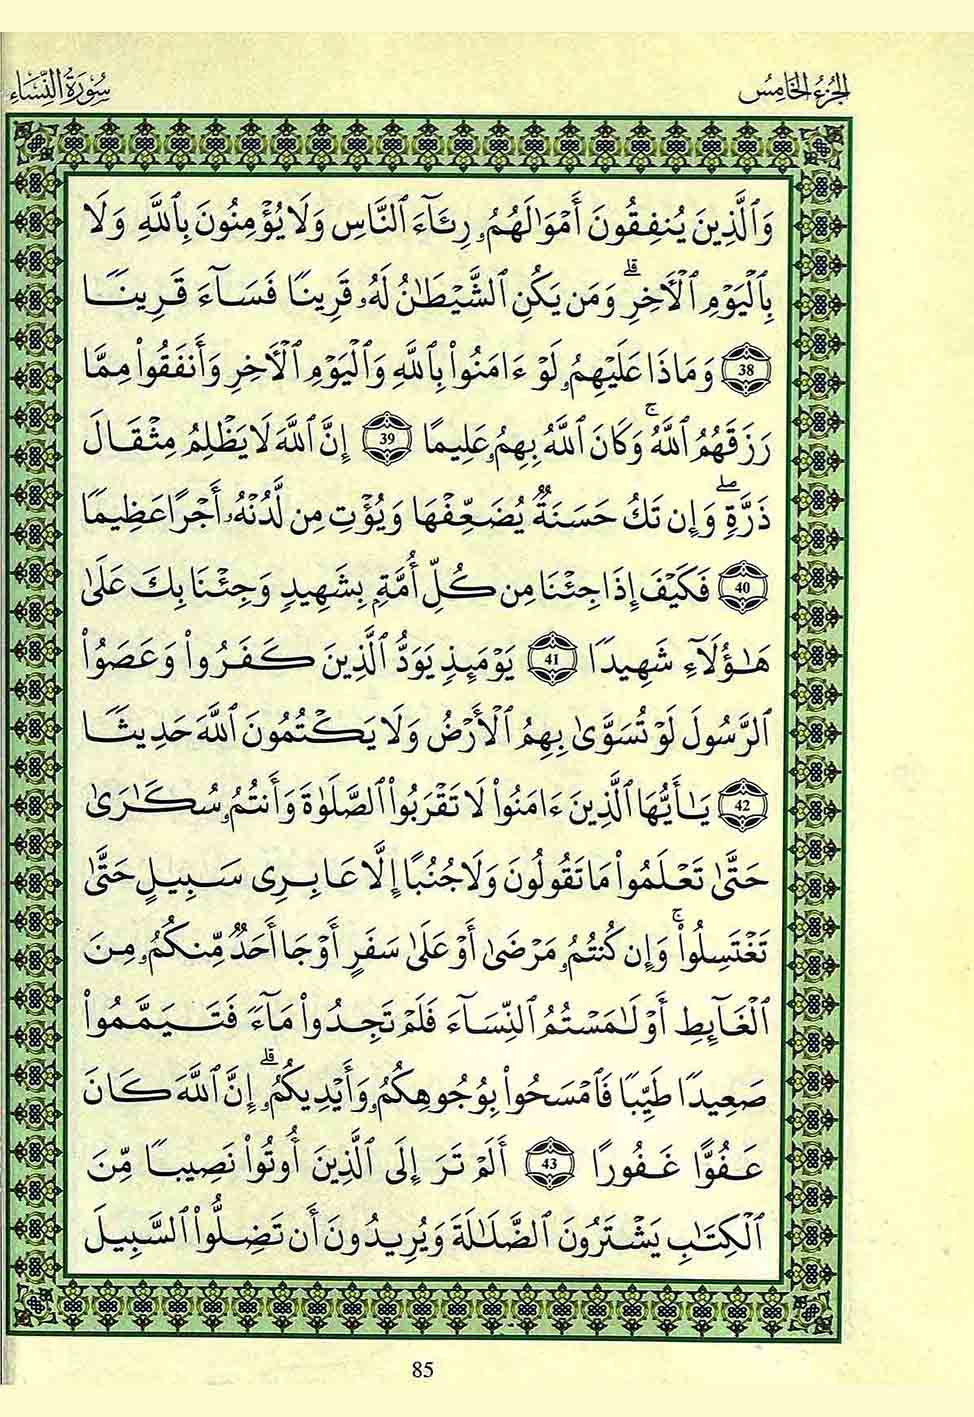 الجزء الخامس
سورة النساء
وَٱلَّذِينَ يُنفِقُونَ أَمْوَٰلَهُمُۥ رِئَآءَ ٱلنَّاسِ وَلَا يُؤْمِنُونَ بِٱللَّهِ وَلَا
بِٱلْيَوْمِ ٱلْأَخِرِ ۗ وَمَن يَكُنِ ٱلشَّيْطَٰنُ لَهُۥ قَرِينًا فَسَآءَ قَرِينًا
38 وَمَاذَا عَلَيْهِمُۥ لَوْ ءَامَنُوا۟ بِٱللَّهِ وَٱلْيَوْمِ ٱلْأَخِرِ وَأَنفَقُوا۟ مِمَّا
رَزَقَهُمُ ٱللَّهُ ۚ وَكَانَ ٱللَّهُ بِهِمُۥ عَلِيمًا 39 إِنَّ ٱللَّهَ لَا يَظْلِمُ مِثْقَالَ
ذَرَّةٍ ۖ وَإِن تَكُ حَسَنَةٌ يُضَعِّفْهَا وَيُؤْتِ مِن لَّدُنْهُۥ أَجْرًا عَظِيمًا
40 فَكَيْفَ إِذَا جِئْنَا مِن كُلِّ أُمَّةٍۭ بِشَهِيدٍ وَجِئْنَا بِكَ عَلَىٰ
هَٰٓؤُلَآءِ شَهِيدًا 41 يَوْمَئِذٍ يَوَدُّ ٱلَّذِينَ كَفَرُوا۟ وَعَصَوُا۟
ٱلرَّسُولَ لَوْ تُسَوَّىٰ بِهِمُ ٱلْأَرْضُ وَلَا يَكْتُمُونَ ٱللَّهَ حَدِيثًا
42 يَٰٓأَيُّهَا ٱلَّذِينَ ءَامَنُوا۟ لَا تَقْرَبُوا۟ ٱلصَّلَوٰةَ وَأَنتُمُۥ سُكَٰرَىٰ
حَتَّىٰ تَعْلَمُوا۟ مَا تَقُولُونَ وَلَا جُنُبًا إِلَّا عَابِرِى سَبِيلٍ حَتَّىٰ
تَغْتَسِلُوا۟ ۚ وَإِن كُنتُمُۥ مَرْضَىٰ أَوْ عَلَىٰ سَفَرٍ أَوْ جَا أَحَدٌ مِّنكُمُۥ مِنَ
ٱلْغَآئِطِ أَوْ لَٰمَسْتُمُ ٱلنِّسَآءَ فَلَمْ تَجِدُوا۟ مَآءً فَتَيَمَّمُوا۟
صَعِيدًا طَيِّبًا فَٱمْسَحُوا۟ بِوُجُوهِكُمُۥ وَأَيْدِيكُمُۥ ۗ إِنَّ ٱللَّهَ كَانَ
عَفُوًّا غَفُورًا 43 أَلَمْ تَرَ إِلَى ٱلَّذِينَ أُوتُوا۟ نَصِيبًا مِّنَ
ٱلْكِتَٰبِ يَشْتَرُونَ ٱلضَّلَٰلَةَ وَيُرِيدُونَ أَن تَضِلُّوا۟ ٱلسَّبِيلَ
85